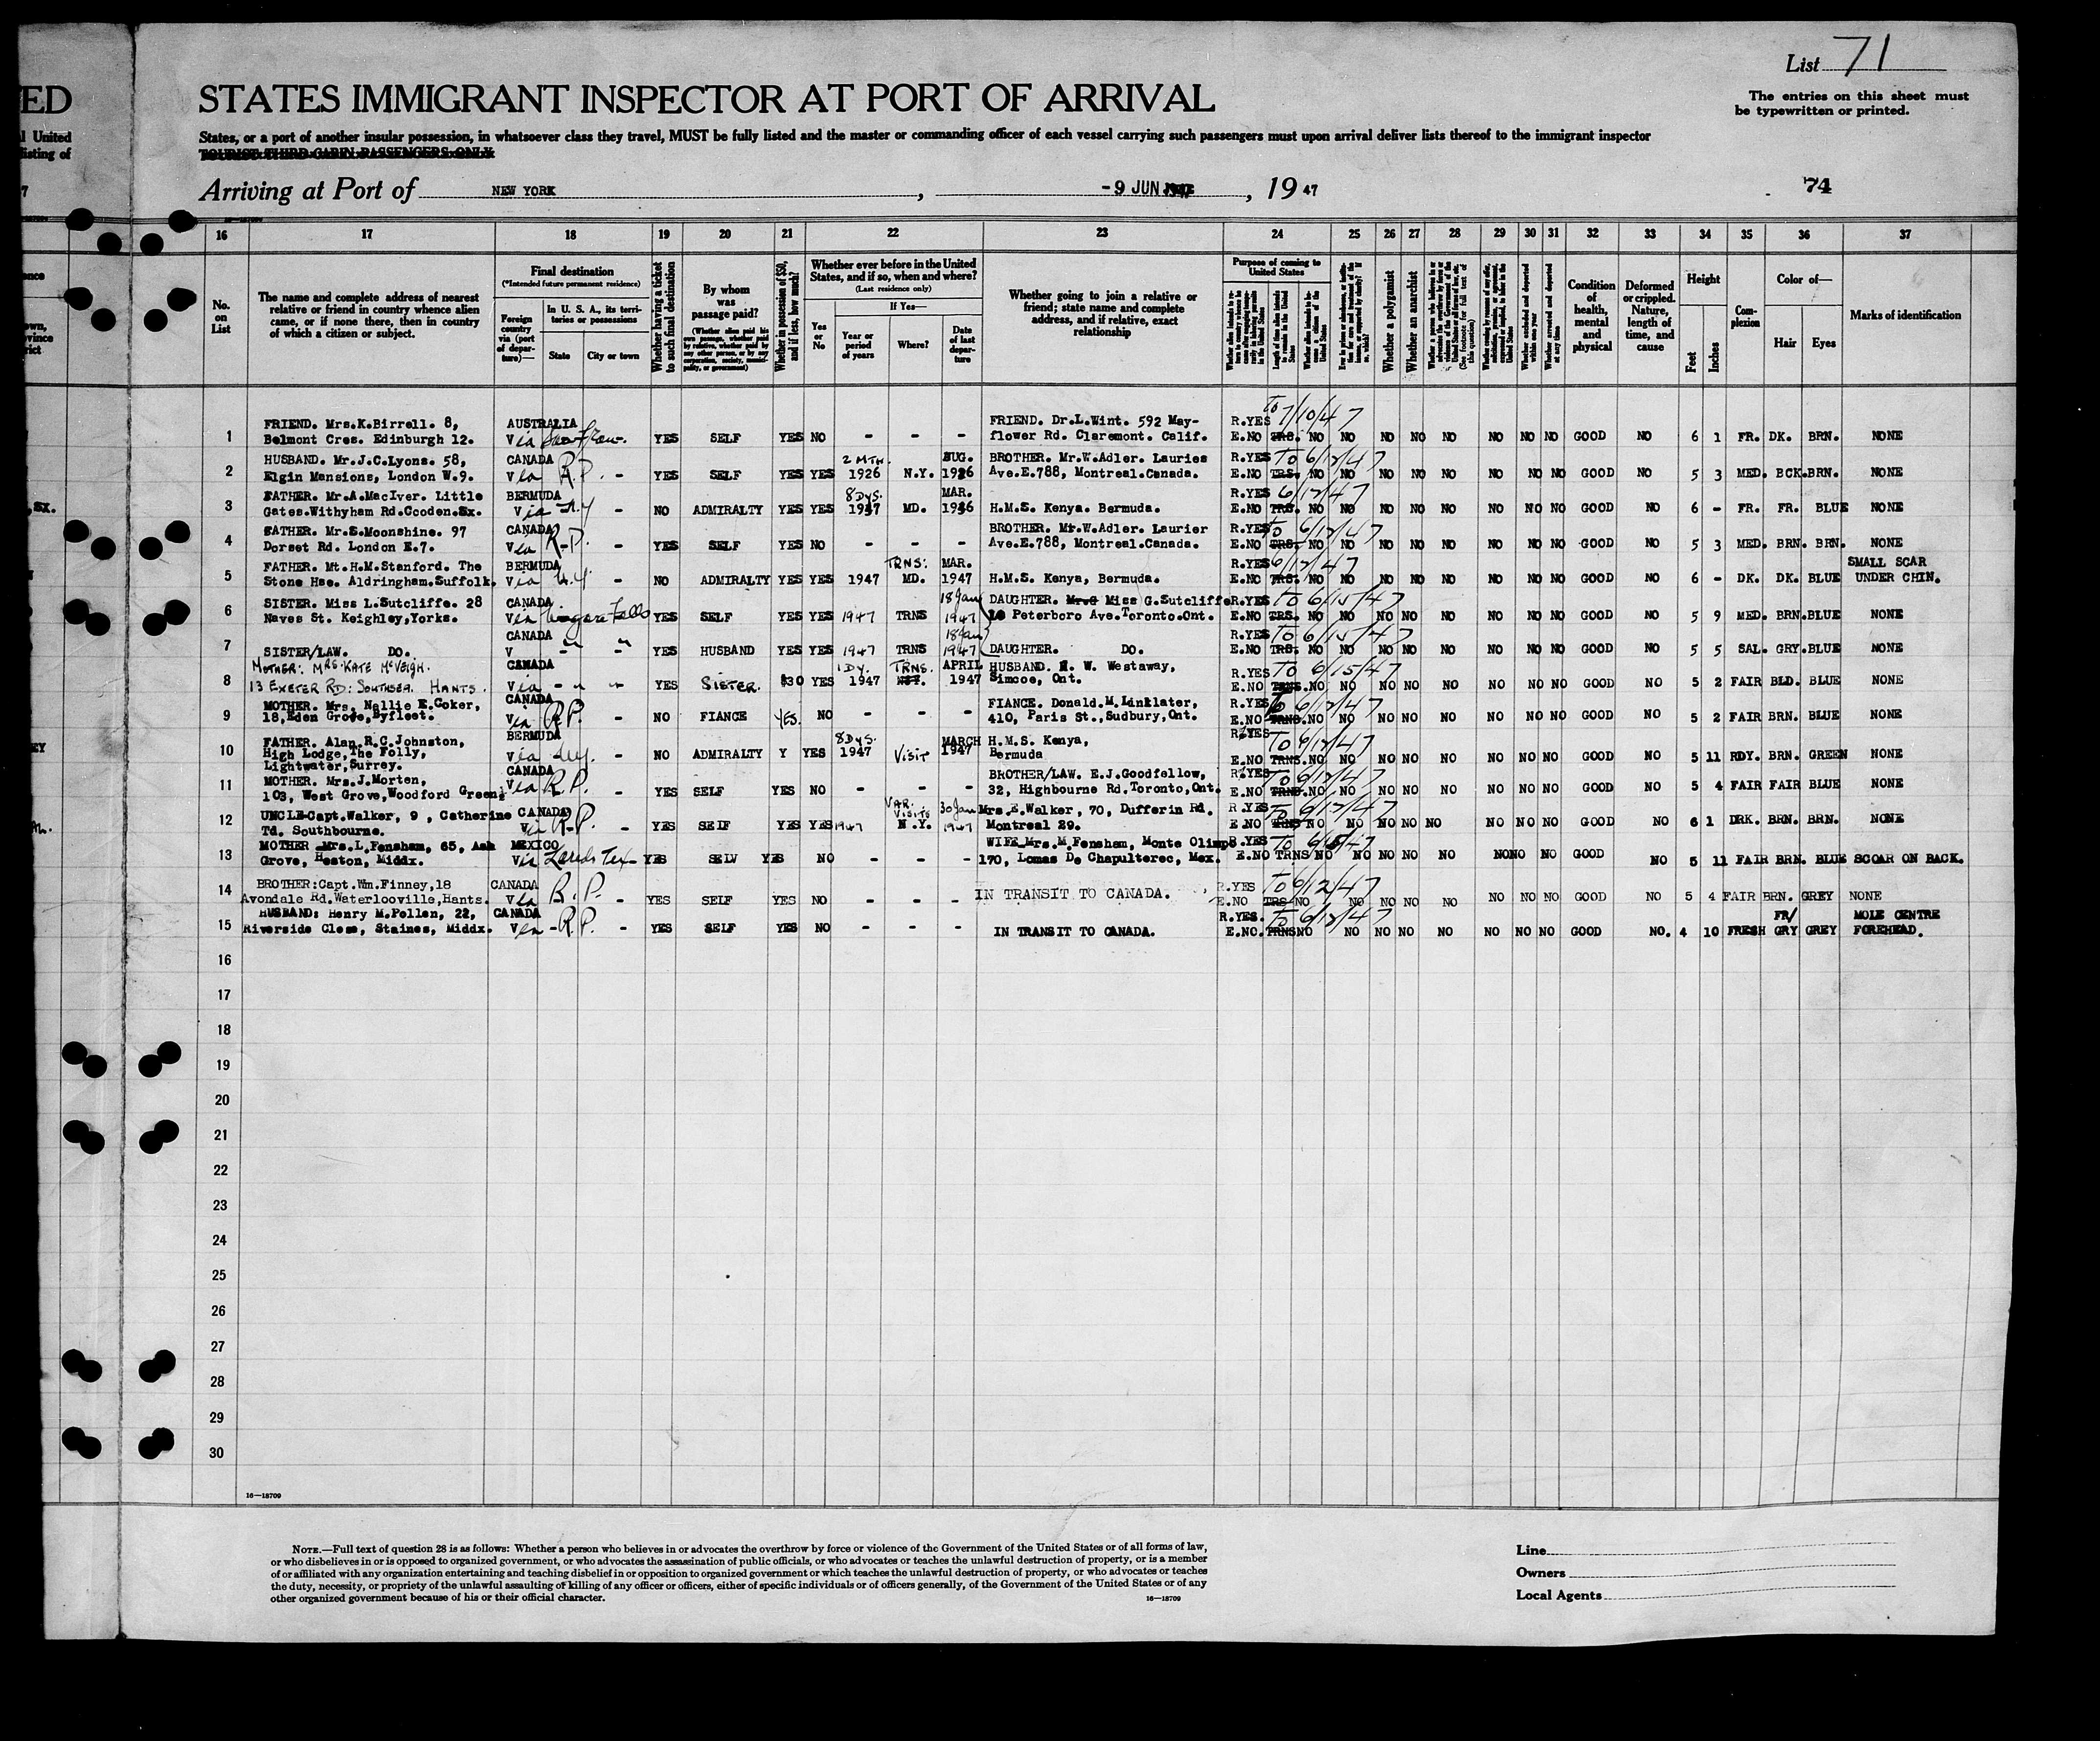 List 71
ED
STATES IMMIGRANT INSPECTOR AT PORT OF ARRIVAL
The entries on this sheet must
be typewritten or printed.
l United
States, or a port of another insular possession, in whatsoever class they travel, MUST be fully listed and the master or commanding officer of each vessel carrying such passengers must upon arrival deliver lists thereof to the immigrant inspector
isting of
TOURIST THIRD CABIN PASSENGERS ONLY
Arriving at Port of NEW YORK , -9 JUN , 19 47 74
16 17 18 19 20 21 22 23 24 25 26 27 28 29 30 31 32 33 34 35 36 37
No. on List
The name and complete address of nearest relative or friend in country whence alien came, or if none there, then in country of which a citizen or subject.
Final destination
(*Intended future permanent residence)
Foreign country via (port of departure)—
In U. S. A., its territories or possessions
State City or town
Whether having a ticket to such final destination
By whom was passage paid?
(Whether alien paid his own passage, whether paid by relative, whether paid by any other person, or by any corporation, society, municipality, or government)
Whether in possession of $50, and if less, how much?
Whether ever before in the United States, and if so, when and where?
(Last residence only)
Yes or No
If Yes—
Year or period of years Where? Date of last departure
Whether going to join a relative or friend; state name and complete address, and if relative, exact relationship
Purpose of coming to United States
Whether a polygamist
Whether an anarchist
Condition of health, mental and physical
Deformed or crippled. Nature, length of time, and cause
Height
Feet Inches
Complexion
Color of—
Hair Eyes
Marks of identification
FRIEND. Mrs.K.Birrell. 8, AUSTRALIA FRIEND. Dr.L.Wint. 592 May- R.YES To 7/10/47
1 Belmont Cres. Edinburgh 12. Via YES SELF YES NO - - - flower Rd. Claremont. Calif. E.NO TRS. NO NO NO NO NO NO NO NO GOOD NO 6 1 FR. DK. BRN. NONE
HUSBAND. Mr.J.C.Lyons. 58, CANADA 2 MTH. AUG. BROTHER. Mr.W.Adler. Lauries R.YES To 6/12/47
2 Elgin Mansions, London W.9. Via R.P. - YES SELF YES YES 1926 N.Y. 1926 Ave.E.788, Montreal.Canada. E.NO TRS. NO NO NO NO NO NO NO NO GOOD NO 5 3 MED. BCK. BRN. NONE
FATHER. Mr.A.MacIver. Little BERMUDA 8 Dys. MAR. R.YES 6/12/47
3 Gates.Withyham Rd.Cooden.Sx. Via N.Y - NO ADMIRALTY YES YES 1937 MD. 1936 H.M.S. Kenya. Bermuda. E.NO TRS. NO NO NO NO NO NO NO NO GOOD NO 6 - FR. FR. BLUE NONE
FATHER. Mr.S.Moonshine. 97 CANADA BROTHER. Mr.W.Adler. Laurier R.YES To 6/12/47
4 Dorset Rd. London E.7. Via R.P. - YES SELF YES NO - - - Ave.E.788, Montreal.Canada. E.NO TRS. NO NO NO NO NO NO NO NO GOOD NO 5 3 MED. BRN. BRN. NONE
FATHER. Mt.H.M.Stanford. The BERMUDA TRNS: MAR. R.YES 6/12/47 SMALL SCAR
5 Stone Hse. Aldringham.Suffolk. Via N.Y. - NO ADMIRALTY YES YES 1947 MD. 1947 H.M.S. Kenya, Bermuda. E.NO TRS. NO NO NO NO NO NO NO NO GOOD NO 6 - DK. DK. BLUE UNDER CHIN.
SISTER. Miss L.Sutcliffe. 28 CANADA 18 Jan DAUGHTER. Miss G.Sutcliffe R.YES To 6/15/47
6 Naves St. Keighley,Yorks. via Niagara Falls YES SELF YES YES 1947 TRNS 1947 Peterboro Ave.Toronto.Ont. E.NO TRS. NO NO NO NO NO NO NO NO GOOD NO 5 9 MED. BRN. BLUE NONE
CANADA 18 Jan R.YES To 6/15/47
7 SISTER/LAW. DO. V - " " YES HUSBAND YES YES 1947 TRNS 1947 DAUGHTER. DO. E.NO TRS. NO NO NO NO NO NO NO NO GOOD NO 5 5 SAL. GRY. BLUE NONE
MOTHER: MRS KATE McVEIGH. CANADA 1 DY. TRNS. APRIL HUSBAND. R. W. Westaway, R.YES To 6/15/47
8 13 EXETER RD: SOUTHSEA. HANTS. Via - " " YES SISTER. $30 YES 1947 1947 Simcoe, Ont. E.NO TRNS. NO NO NO NO NO NO NO NO GOOD NO 5 2 FAIR BLD. BLUE NONE
MOTHER. Mrs, Nellie E.Coker, CANADA FIANCE. Donald.M.Linklater, R.YES To 6/12/47
9 18,Eden Grove,Byfleet. Via R.P. - NO FIANCE YES. NO - - - 410, Paris St.,Sudbury,Ont. E.NO TRNS. NO NO NO NO NO NO NO NO GOOD NO 5 2 FAIR BRN. BLUE NONE
FATHER. Alan.R.C.Johnston, BERMUDA 8 Dys. MARCH H.M.S. Kenya, R.YES To 6/12/47
10 High Lodge,The Folly, via N.Y. - NO ADMIRALTY Y YES 1947 VISIT 1947 Bermuda E.NO TRNS. NO NO NO NO NO NO NO NO GOOD NO 5 11 RDY. BRN. GREEN NONE
Lightwater,Surrey.
MOTHER. Mrs.J.Morten, CANADA BROTHER/LAW. E.J.Goodfellow, R.YES To 6/12/47
11 103, West Grove,Woodford Green. Via R.P. - YES SELF YES NO - - - 32, Highbourne Rd.Toronto,Ont. E.NO TRNS. NO NO NO NO NO NO NO NO GOOD NO 5 4 FAIR FAIR BLUE NONE
UNCLE Capt.Walker, 9 , Catherine CANADA VAR. VISITS 30 Jan Mrs.E.Walker, 70, Dufferin Rd. R.YES To 6/12/47
12 Td. Southbourne. Via R.P. - YES SELF YES YES 1947 N.Y. 1947 Montreal 29. E.NO TRNS NO NO NO NO NO NO NO NO GOOD NO 6 1 DRK. BRN. BRN. NONE
MOTHER Mrs.L.Fensham, 65, Ash MEXICO WIFE Mrs.M.Fensham, Monte Olimpo R.YES To 6/15/47
13 Grove, Heston, Middx. Via Laredo Tex - YES SELV YES NO - - - 170, Lomas De Chapulterec, Mex. E.NO TRNS NO NO NO NO NO NO NO NO GOOD NO 5 11 FAIR BRN. BLUE SCOAR ON BACK.
BROTHER:Capt.Wm.Finney,18 CANADA R.YES To 6/12/47
14 Avondale Rd.Waterlooville,Hants. Via R.P. - YES SELF YES NO - - - IN TRANSIT TO CANADA. E.NO TRS NO NO NO NO NO NO NO NO GOOD NO 5 4 FAIR BRN. GREY NONE
HUSBAND: Henry M.Pellen, 22, CANADA R.YES. To 6/12/47 FR/ MOLE CENTRE
15 Riverside Close, Staines, Middx. Via - R.P. - YES SELF YES NO - - - IN TRANSIT TO CANADA. E.NO. TRNS NO NO NO NO NO NO NO NO GOOD NO. 4 10 FRESH GRY GREY FOREHEAD.
16
17
18
19
20
21
22
23
24
25
26
27
28
29
30
16—18709
NOTE.—Full text of question 28 is as follows: Whether a person who believes in or advocates the overthrow by force or violence of the Government of the United States or of all forms of law,
or who disbelieves in or is opposed to organized government, or who advocates the assassination of public officials, or who advocates or teaches the unlawful destruction of property, or is a member
of or affiliated with any organization entertaining and teaching disbelief in or opposition to organized government or which teaches the unlawful destruction of property, or who advocates or teaches
the duty, necessity, or propriety of the unlawful assaulting or killing of any officer or officers, either of specific individuals or of officers generally, of the Government of the United States or of any
other organized government because of his or their official character.
16—18709
Line
Owners
Local Agents